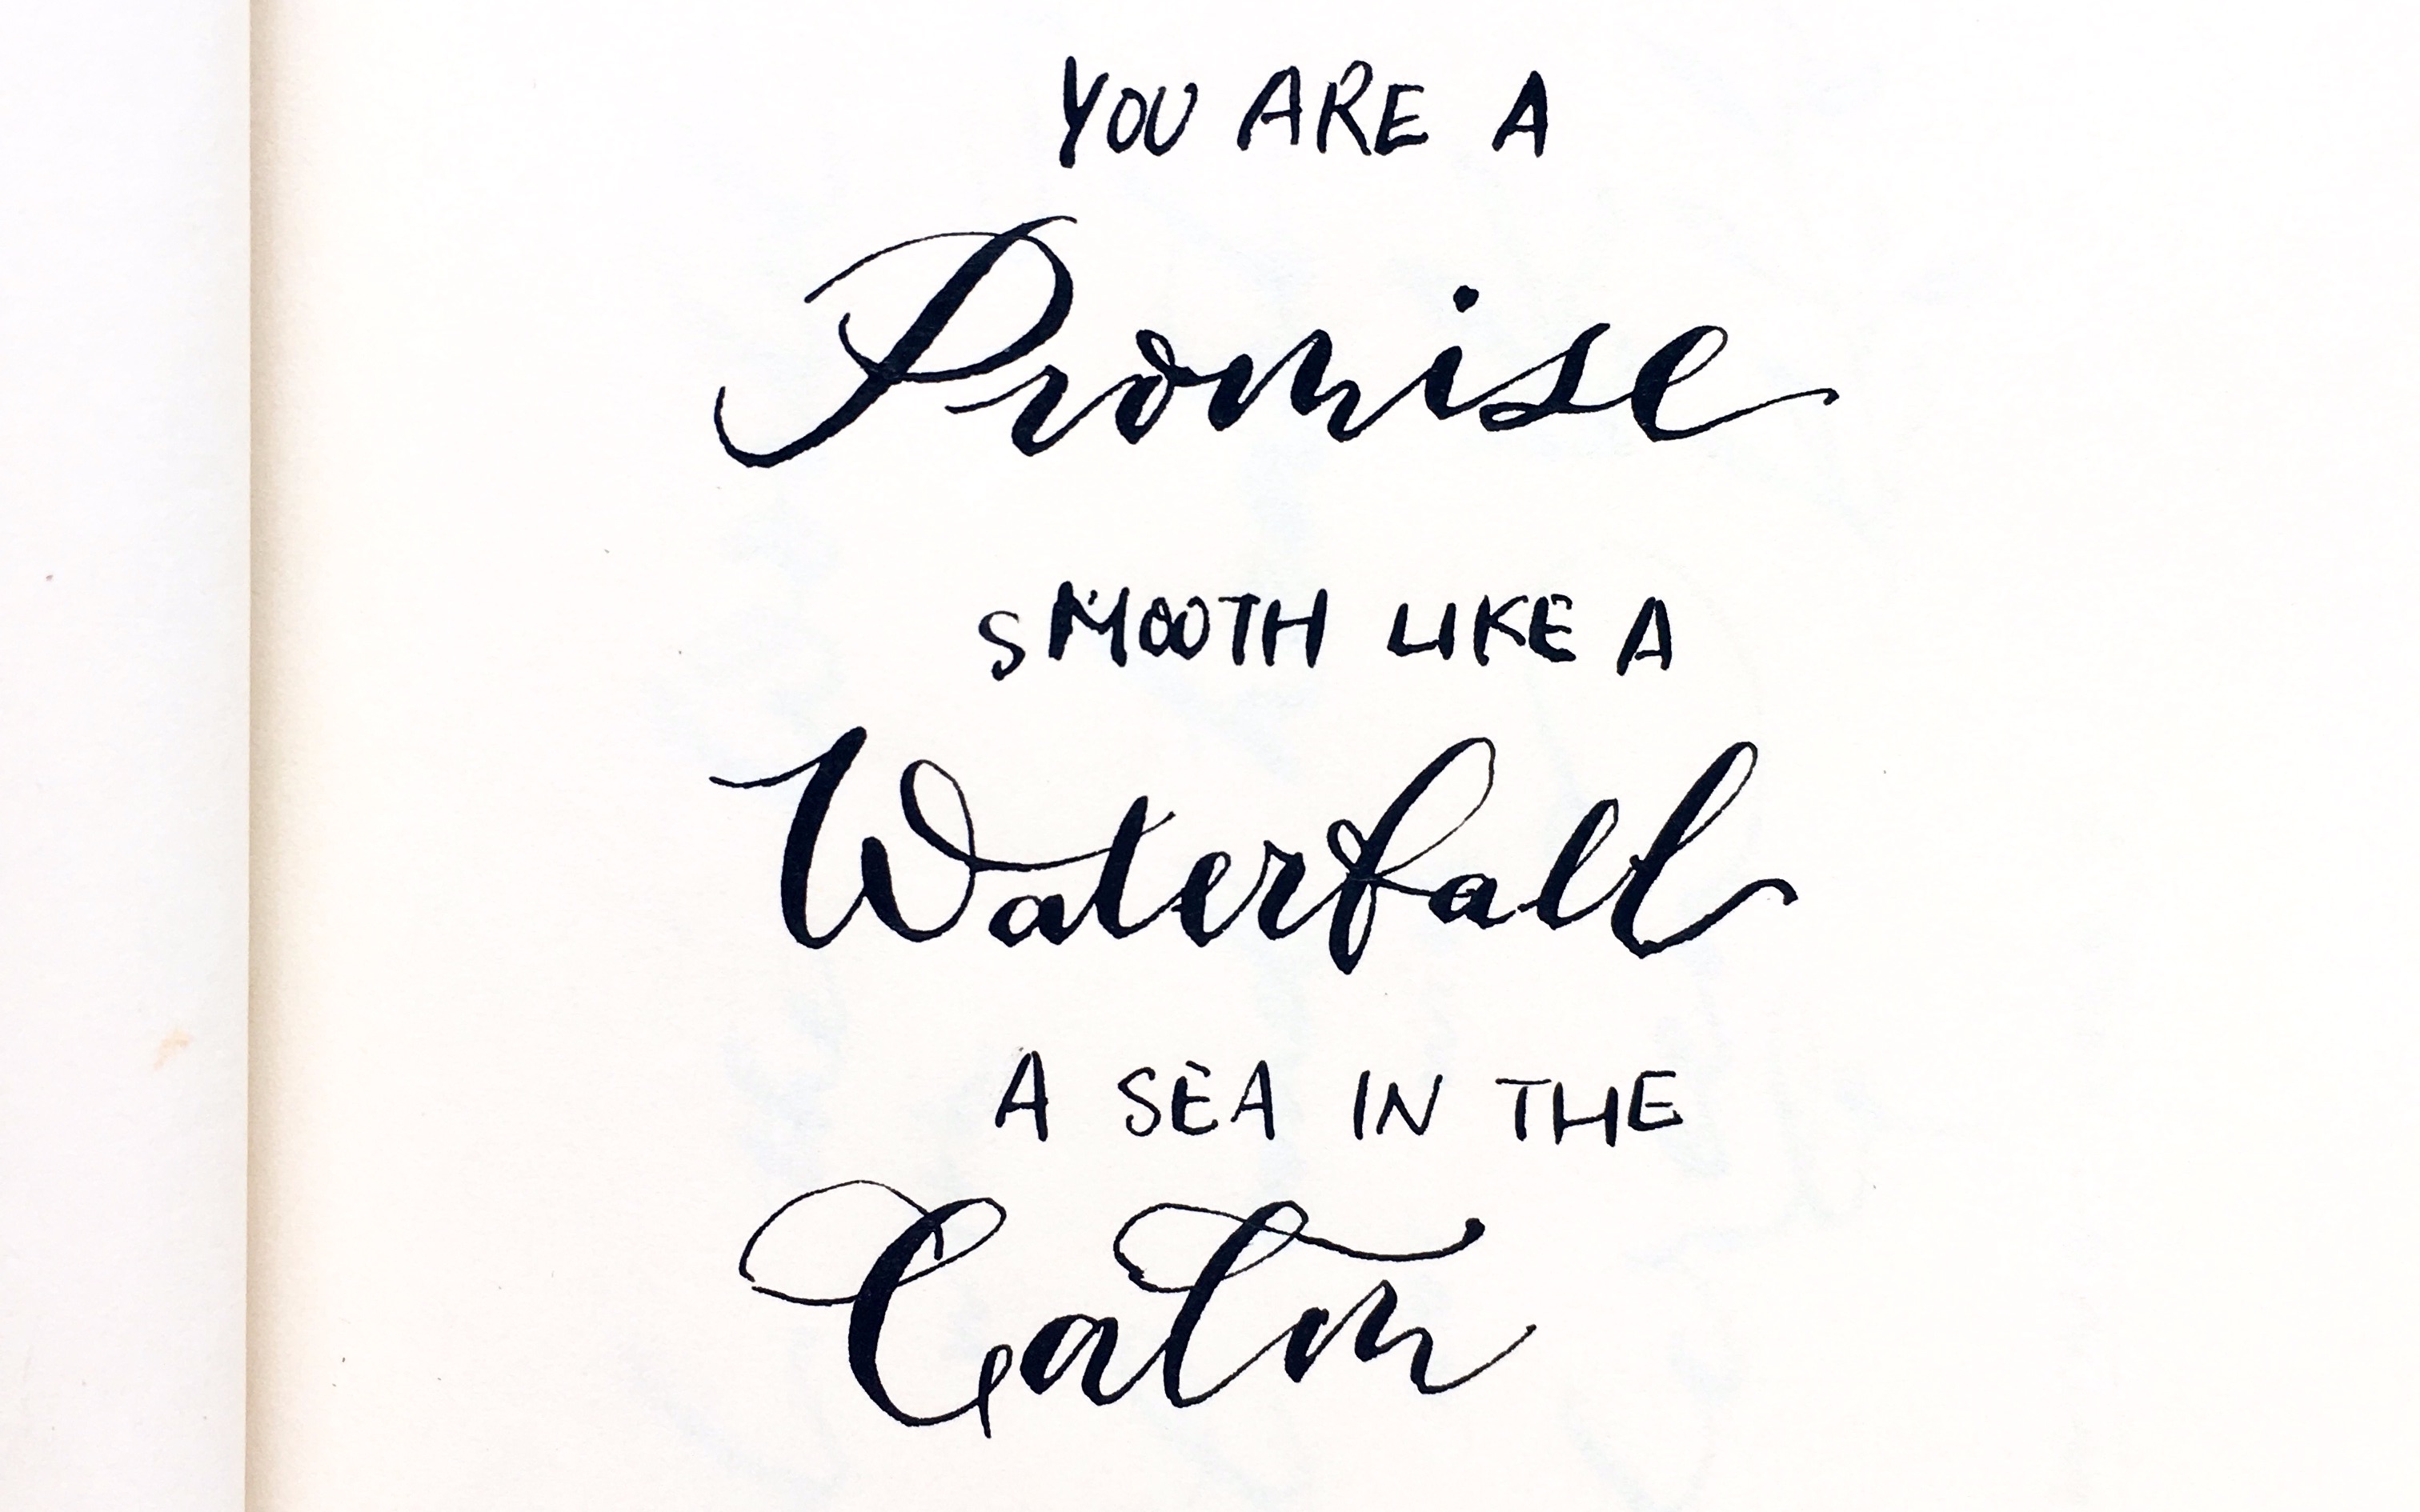 YOU ARE A
Promise
SMOOTH LIKE A
Waterfall
A SEA IN THE
Calm